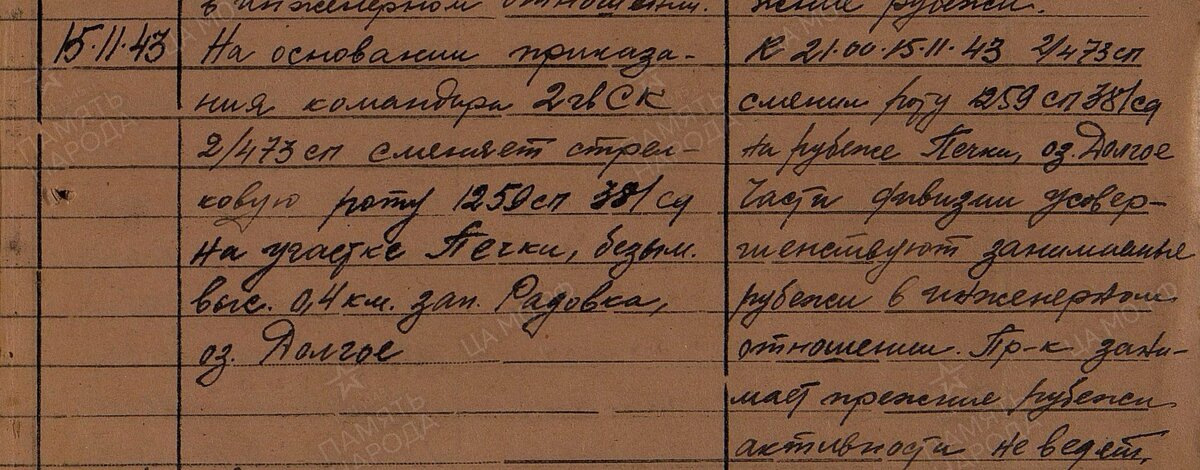 в инженерном отношении.
15.11.43 На основании приказа-
ния командира 2 гв СК
2/473 сп сменяет стрел-
ковую роту 1259 сп 381 сд
на участке Печки, безым.
выс. 0,4 км. зап. Радовка,
оз. Долгое
жние рубежи.
К 21.00 15.11.43 2/473 сп
сменил роту 1259 сп 381 сд
на рубеже Печки, оз. Долгое
Части дивизии усовер-
шенствуют занимаемые
рубежи в инженерном
отношении. Пр-к зани-
мает прежние рубежи
активности не ведет.
ПАМЯТЬ НАРОДА
ЦА МО РФ